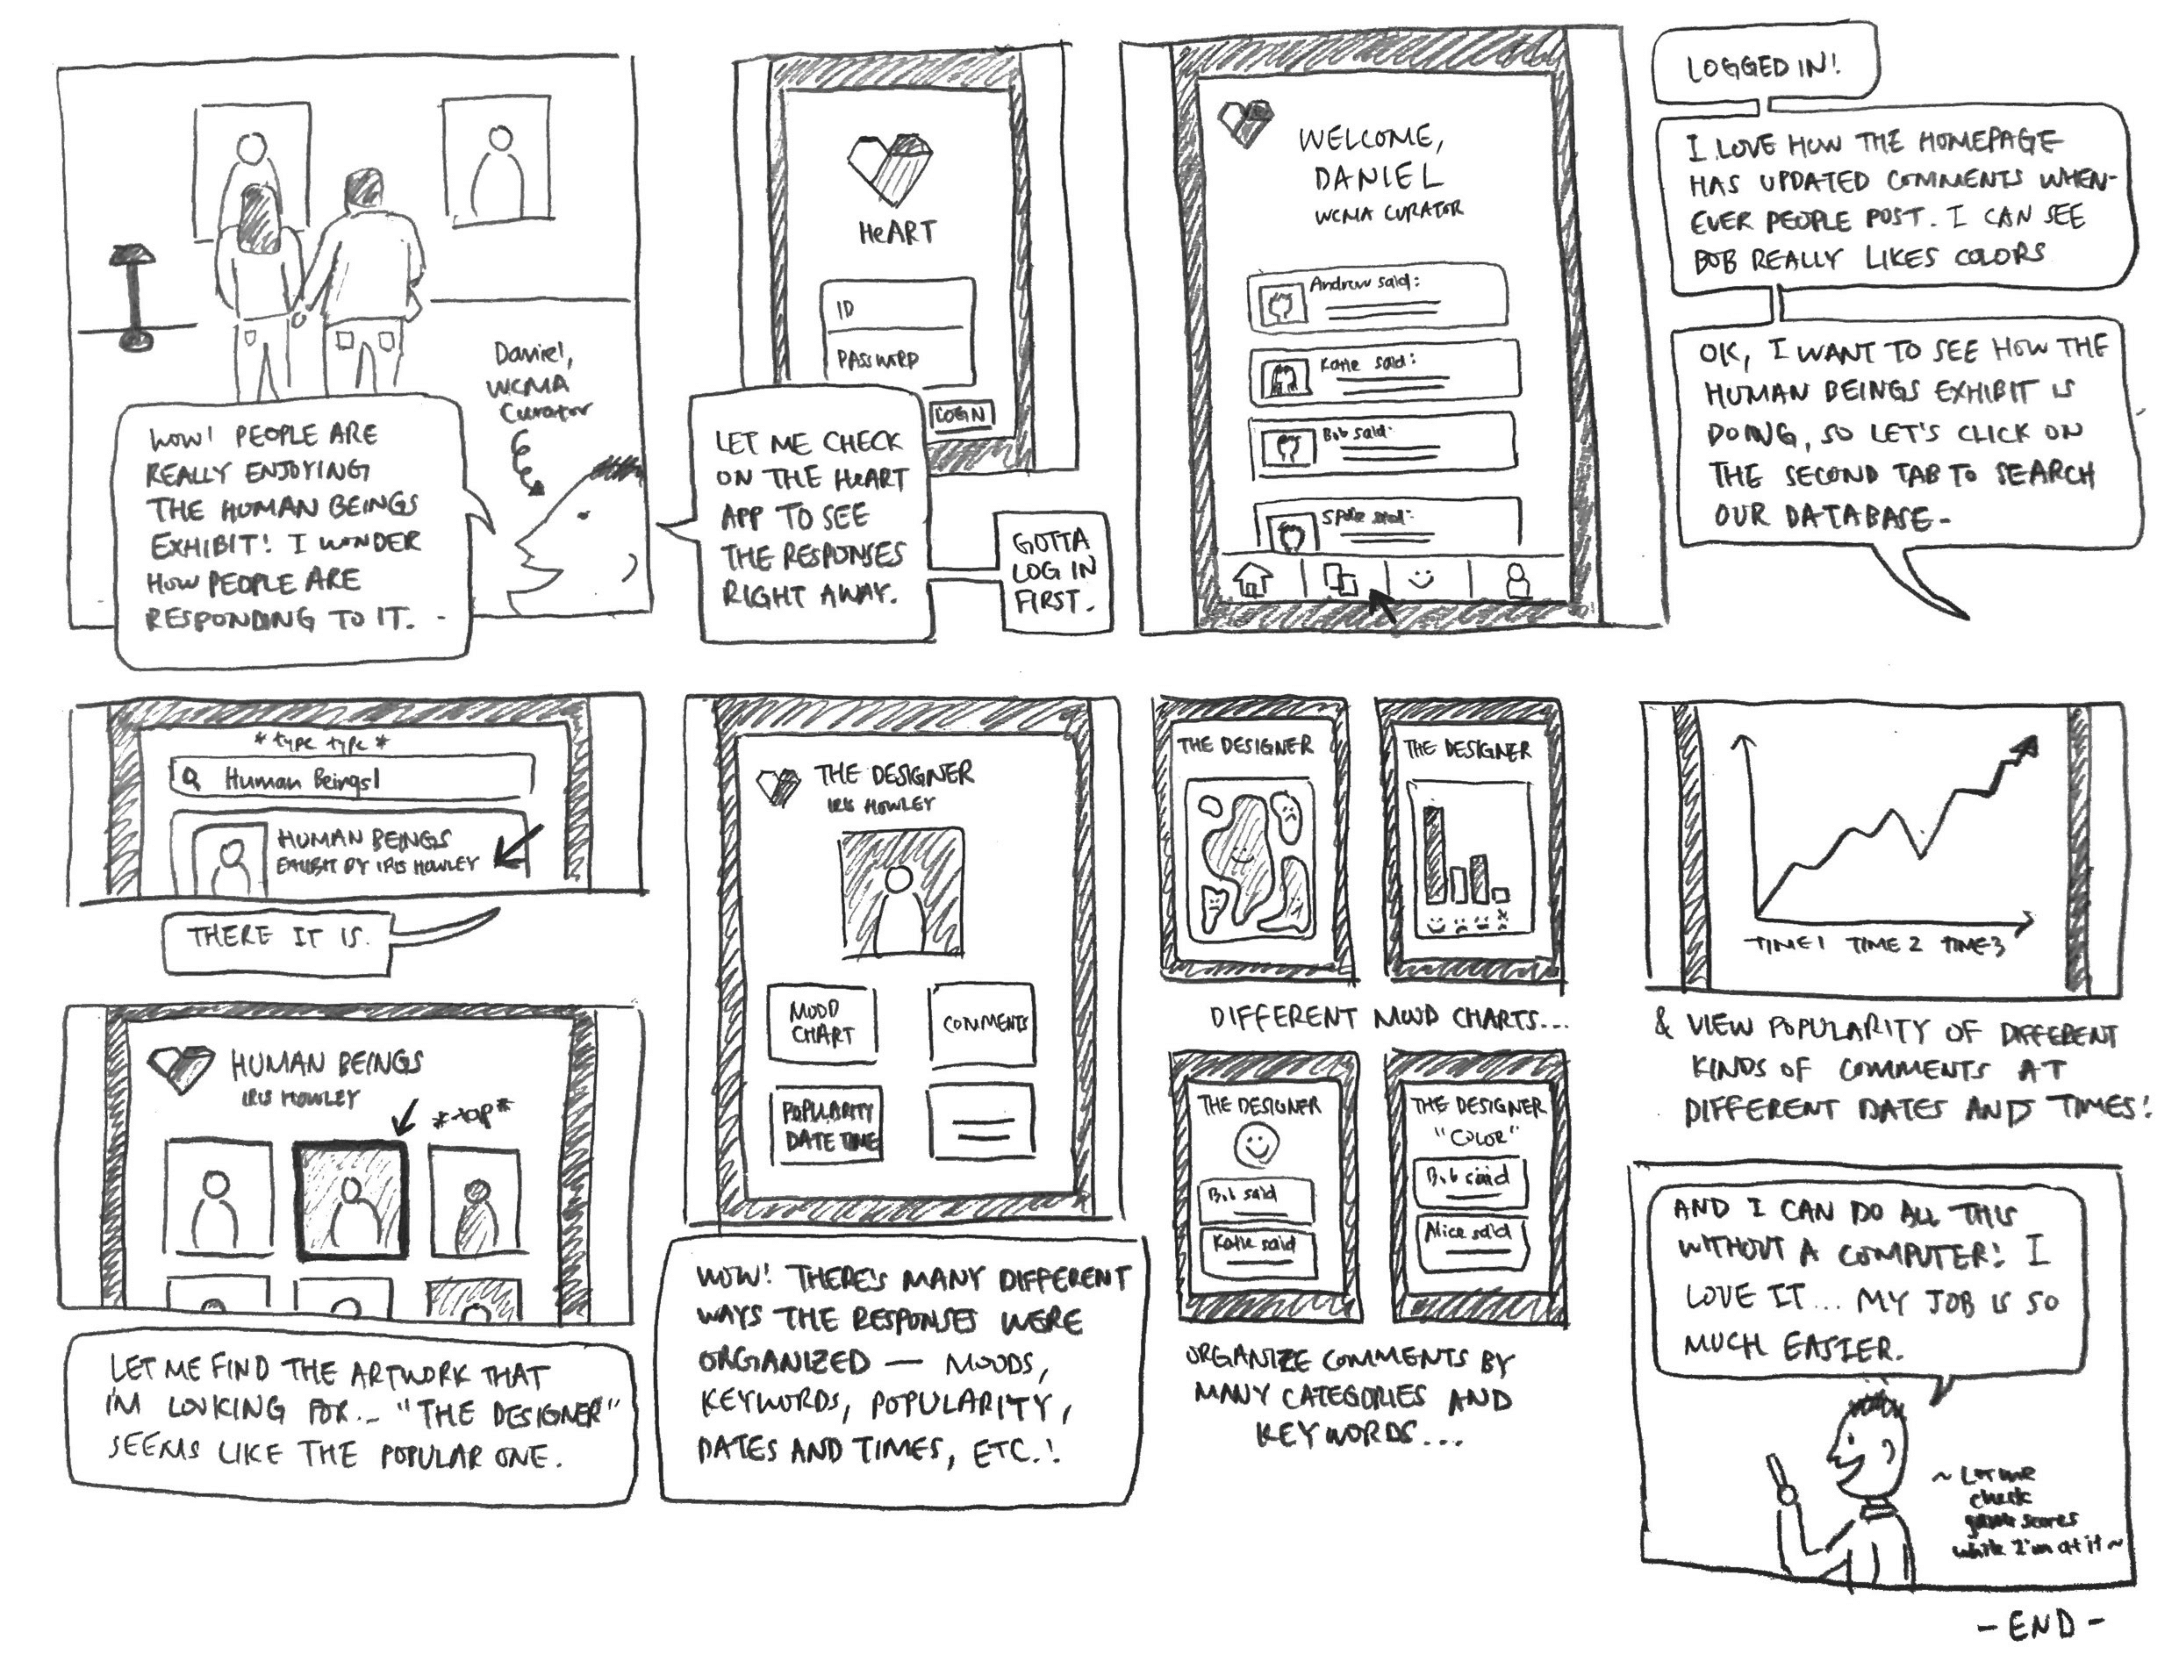 Daniel,
WCMA
Curator
WOW! PEOPLE ARE
REALLY ENJOYING
THE HUMAN BEINGS
EXHIBIT! I WONDER
HOW PEOPLE ARE
RESPONDING TO IT.
HeART
ID
PASSWORD
LOGIN
LET ME CHECK
ON THE HeART
APP TO SEE
THE RESPONSES
RIGHT AWAY.
GOTTA
LOG IN
FIRST.
WELCOME,
DANIEL
WCMA CURATOR
Andrew said:
Katie said:
Bob said:
said:
LOGGED IN!
I LOVE HOW THE HOMEPAGE
HAS UPDATED COMMENTS WHEN-
EVER PEOPLE POST. I CAN SEE
BOB REALLY LIKES COLORS
OK, I WANT TO SEE HOW THE
HUMAN BEINGS EXHIBIT IS
DOING, SO LET'S CLICK ON
THE SECOND TAB TO SEARCH
OUR DATABASE-
*type type*
Human Beings|
HUMAN BEINGS
EXHIBIT BY IRIS HOWLEY
THERE IT IS.
HUMAN BEINGS
IRIS HOWLEY
*tap*
LET ME FIND THE ARTWORK THAT
I'M LOOKING FOR... "THE DESIGNER"
SEEMS LIKE THE POPULAR ONE.
THE DESIGNER
IRIS HOWLEY
MOOD
CHART
COMMENTS
POPULARITY
DATE TIME
WOW! THERE'S MANY DIFFERENT
WAYS THE RESPONSES WERE
ORGANIZED — MOODS,
KEYWORDS, POPULARITY,
DATES AND TIMES, ETC.!
THE DESIGNER
THE DESIGNER
DIFFERENT MOOD CHARTS...
THE DESIGNER
Bob said
Katie said
THE DESIGNER
"COLOR"
Bob said
Alice said
ORGANIZE COMMENTS BY
MANY CATEGORIES AND
KEYWORDS...
TIME 1 TIME 2 TIME 3
& VIEW POPULARITY OF DIFFERENT
KINDS OF COMMENTS AT
DIFFERENT DATES AND TIMES!
AND I CAN DO ALL THIS
WITHOUT A COMPUTER! I
LOVE IT... MY JOB IS SO
MUCH EASIER.
~ Let me
check
game scores
while I'm at it ~
- END -